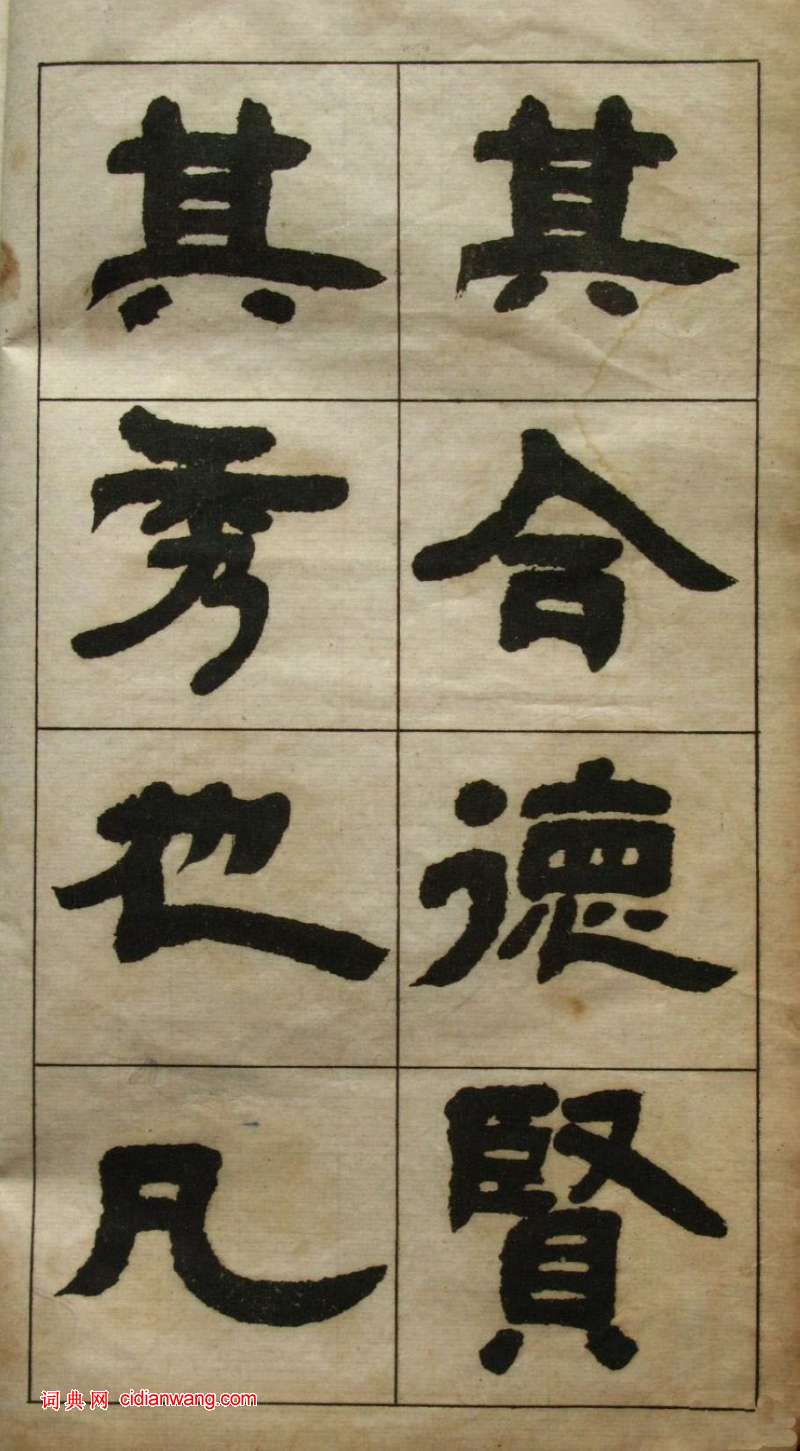 其合德賢
其秀也凡
词典网 cidianwang.com